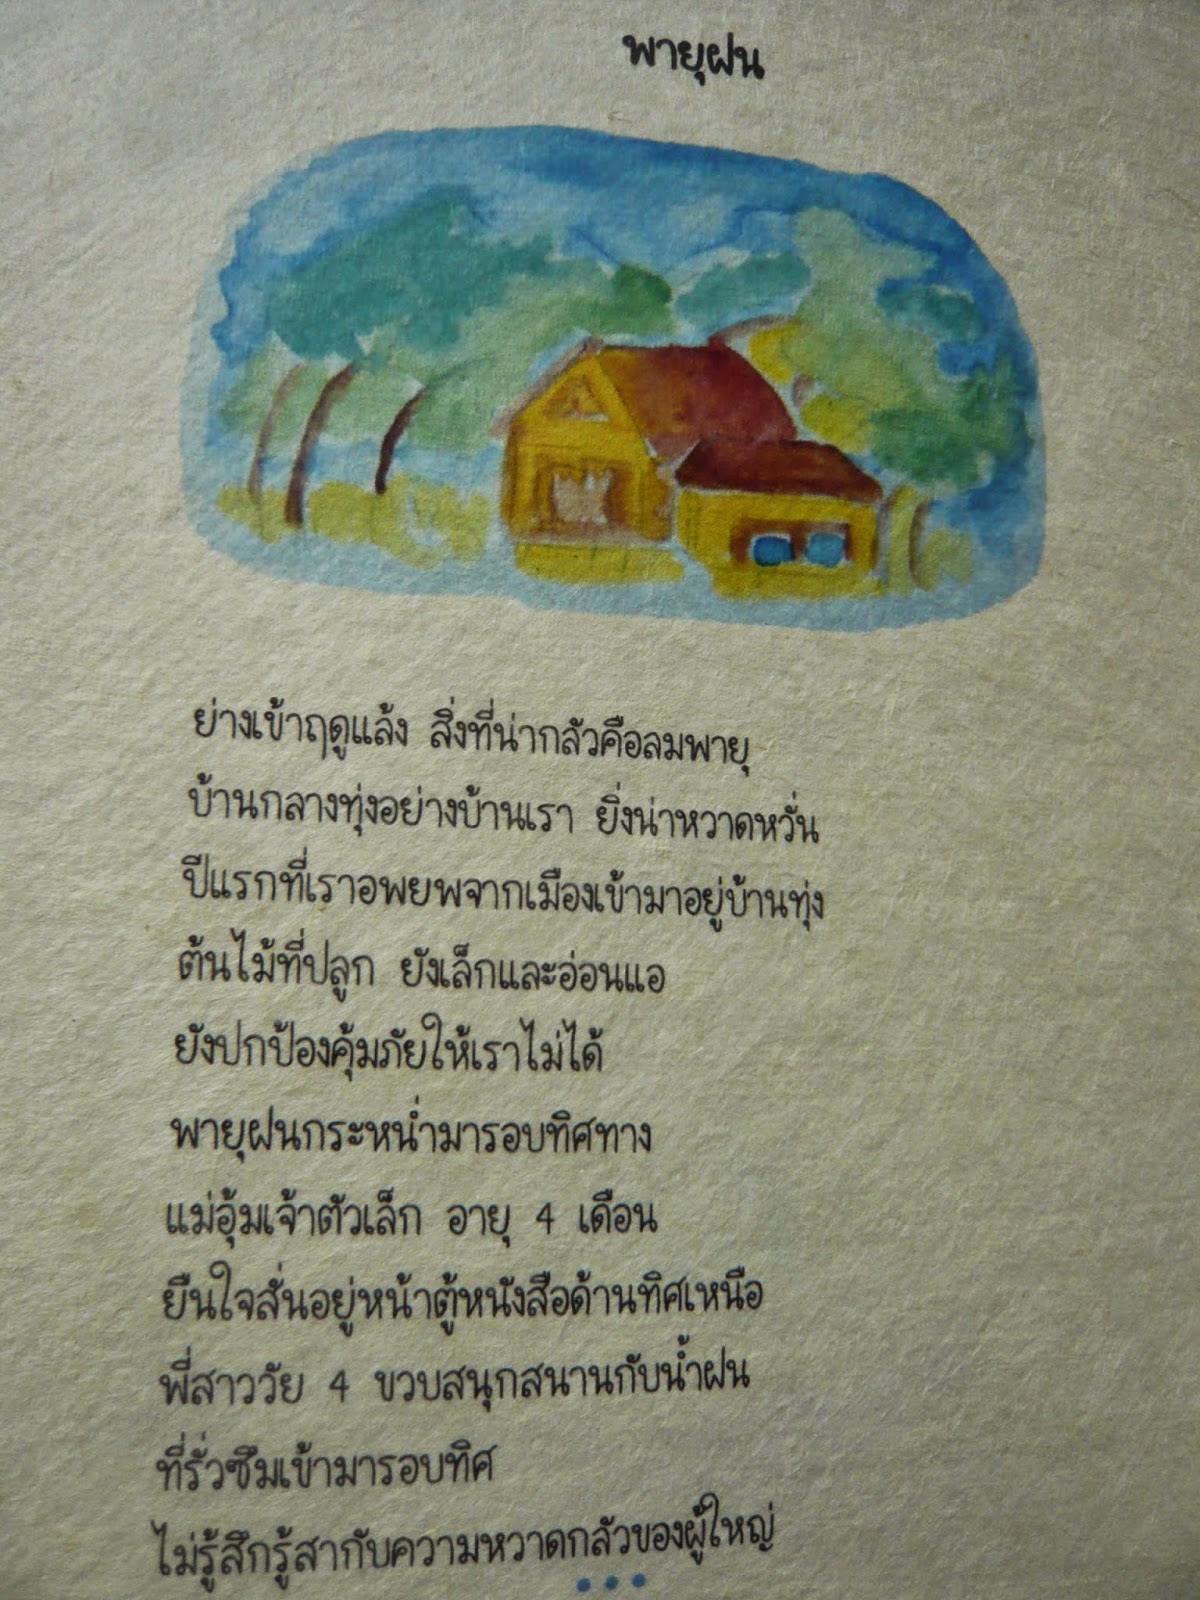 พายุฝน
ย่างเข้าฤดูแล้ง สิ่งที่น่ากลัวคือลมพายุ
บ้านกลางทุ่งอย่างบ้านเรา ยิ่งน่าหวาดหวั่น
ปีแรกที่เราอพยพจากเมืองเข้ามาอยู่บ้านทุ่ง
ต้นไม้ที่ปลูก ยังเล็กและอ่อนแอ
ยังปกป้องคุ้มภัยให้เราไม่ได้
พายุฝนกระหน่ำมารอบทิศทาง
แม่อุ้มเจ้าตัวเล็ก อายุ 4 เดือน
ยืนใจสั่นอยู่หน้าตู้หนังสือด้านทิศเหนือ
พี่สาววัย 4 ขวบสนุกสนานกับน้ำฝน
ที่รั่วซึมเข้ามารอบทิศ
ไม่รู้สึกรู้สากับความหวาดกลัวของผู้ใหญ่